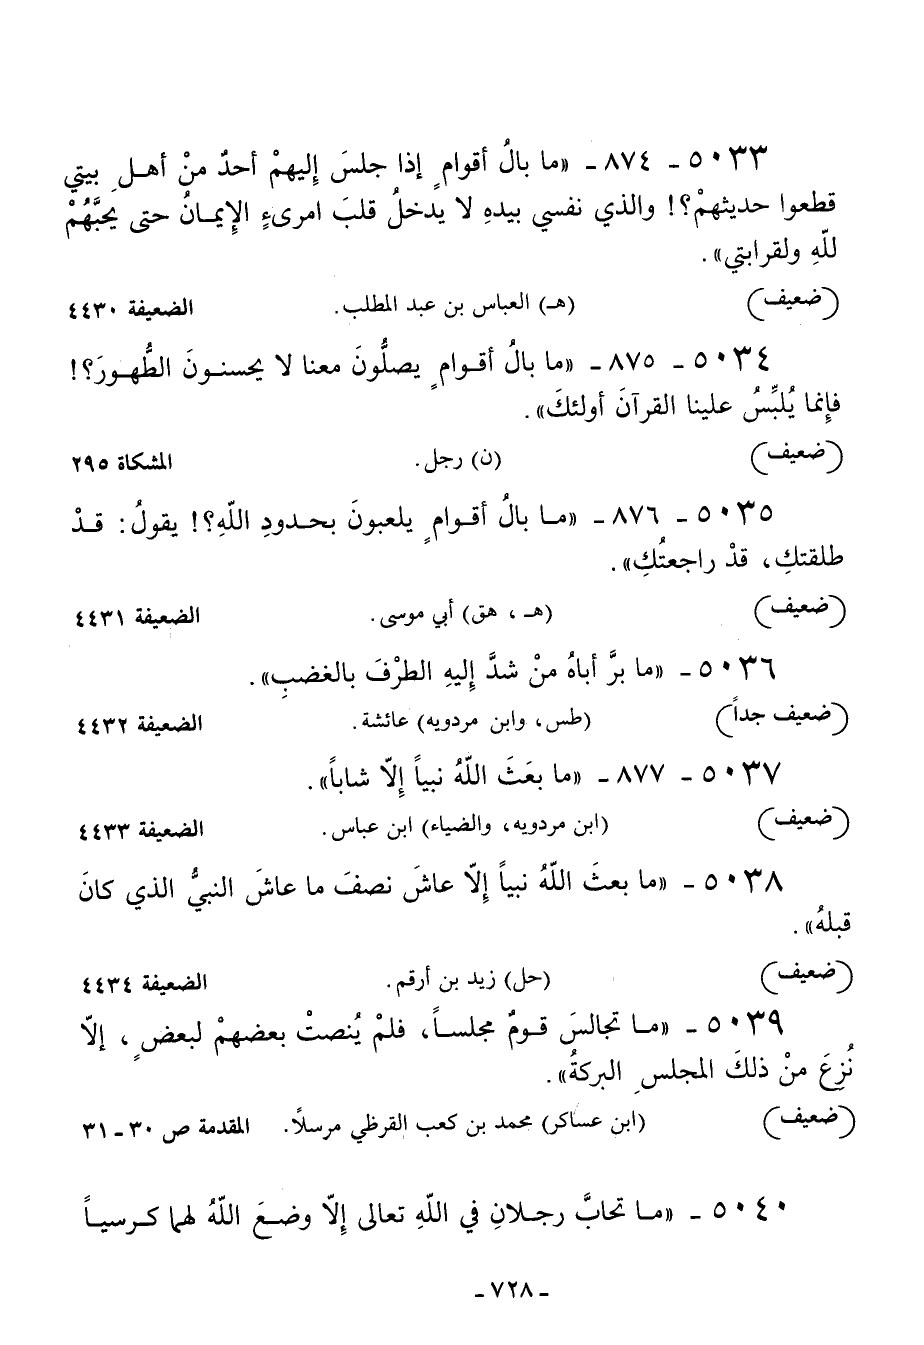 ٥٠٣٣ - ٨٧٤ - «ما بالُ أقوامٍ إذا جلسَ إليهمْ أحدٌ منْ أهلِ بيتي
قطعوا حديثهمْ؟! والذي نفسي بيدهِ لا يدخلُ قلبَ امرىءٍ الإيمانُ حتى يحبَّهُمْ
للّهِ ولقرابتي».
(ضعيف) (هـ) العباس بن عبد المطلب. الضعيفة ٤٤٣٠
٥٠٣٤ - ٨٧٥ - «ما بالُ أقوامٍ يصلُّونَ معنا لا يحسنونَ الطُّهورَ؟!
فإنما يُلبِّسُ علينا القرآنَ أولئكَ».
(ضعيف) (ن) رجل. المشكاة ٢٩٥
٥٠٣٥ - ٨٧٦ - «ما بالُ أقوامٍ يلعبونَ بحدودِ اللّهِ؟! يقولُ: قدْ
طلقتكِ، قدْ راجعتُكِ».
(ضعيف) (هـ، هق) أبي موسى. الضعيفة ٤٤٣١
٥٠٣٦ - «ما برَّ أباهُ منْ شدَّ إليهِ الطرْفَ بالغضبِ».
(ضعيف جداً) (طس، وابن مردويه) عائشة. الضعيفة ٤٤٣٢
٥٠٣٧ - ٨٧٧ - «ما بعَثَ اللّهُ نبياً إلّا شاباً».
(ضعيف) (ابن مردويه، والضياء) ابن عباس. الضعيفة ٤٤٣٣
٥٠٣٨ - «ما بعثَ اللّهُ نبياً إلّا عاشَ نصفَ ما عاشَ النبيُّ الذي كانَ
قبلهُ».
(ضعيف) (حل) زيد بن أرقم. الضعيفة ٤٤٣٤
٥٠٣٩ - «ما تجالسَ قومٌ مجلساً، فلمْ يُنصتْ بعضهمْ لبعضٍ، إلّا
نُزِعَ منْ ذلكَ المجلسِ البركةُ».
(ضعيف) (ابن عساكر) محمد بن كعب القرظي مرسلاً. المقدمة ص ٣٠ - ٣١
٥٠٤٠ - «ما تحابَّ رجلانِ في اللّهِ تعالى إلّا وضعَ اللّهُ لهما كرسياً
- ٧٢٨ -